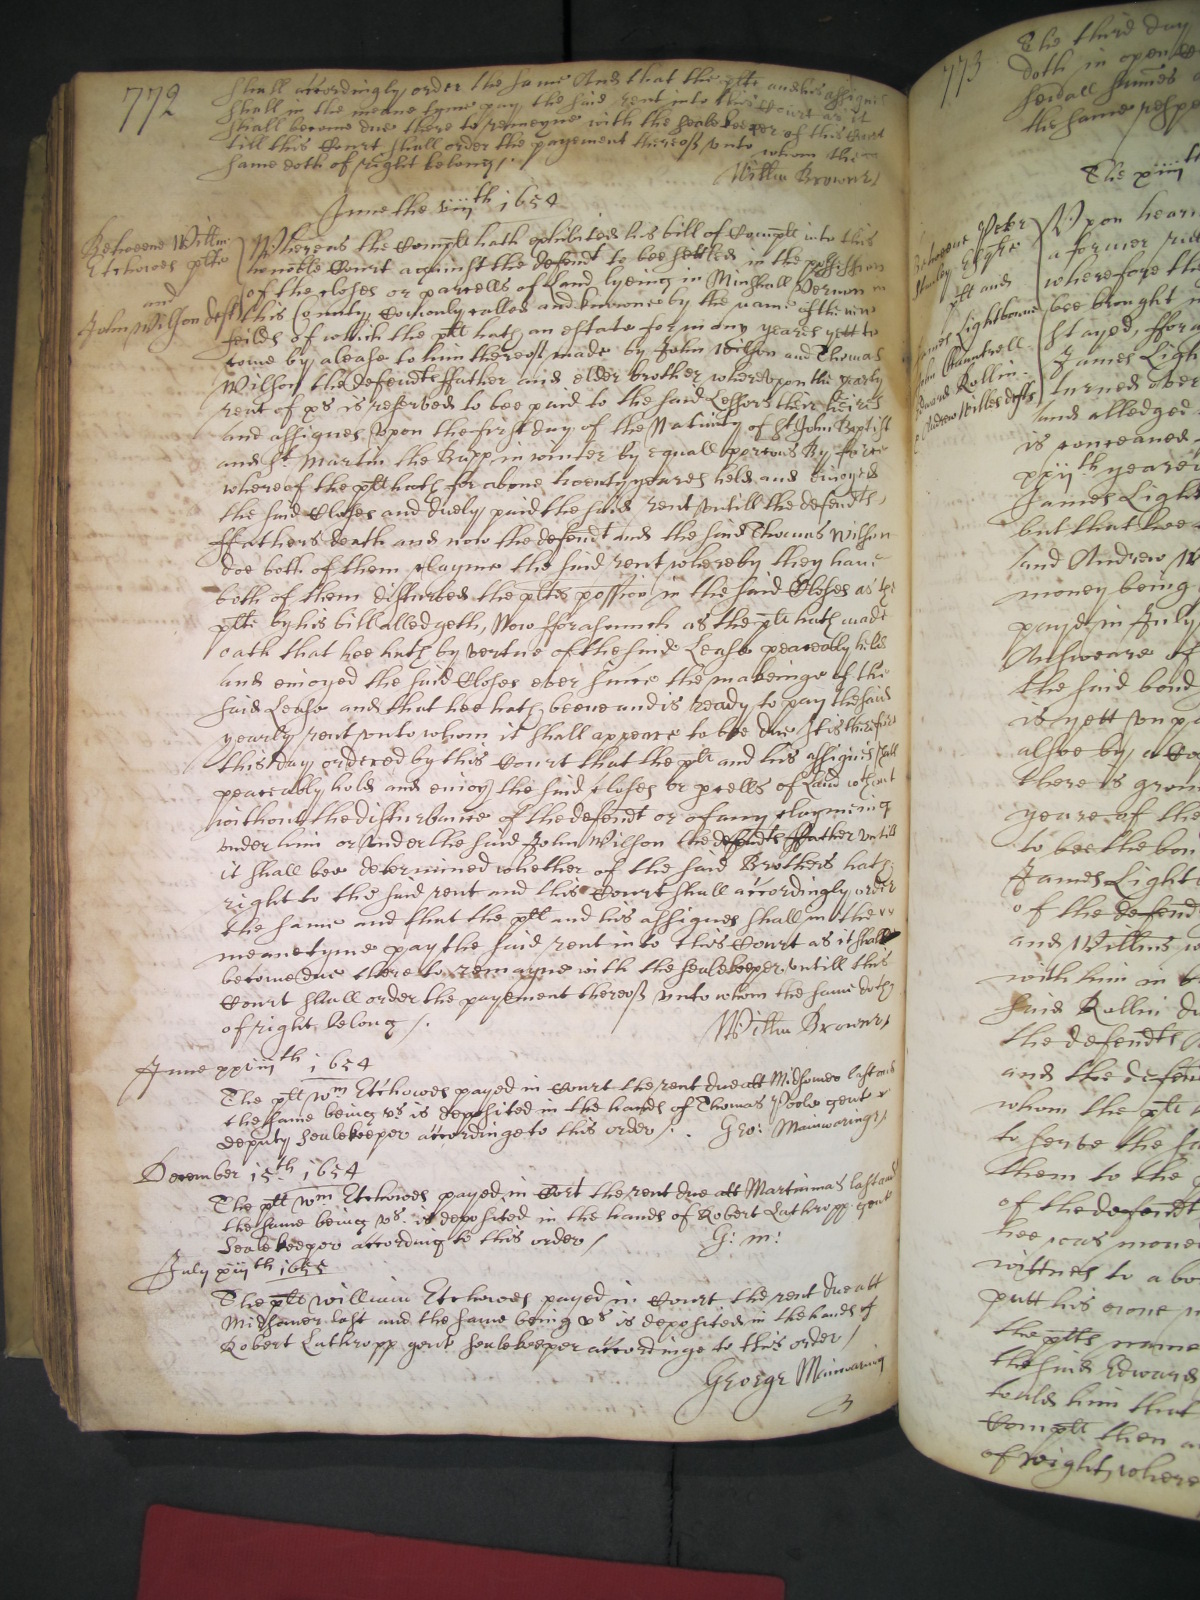 772
shall accordingly order the same And that the plte and his assignes
shall in the meane tyme pay the said rent into this Court as it
shall become due there to remayne with the sealekeeper of this Court
till this Court shall order the payement thereof vnto whom the
same doth of right belong /.
Willm Brownr
June the viijth 1654
Betweene Willm
Etchowes plte
and
John Wilson deft
Whereas the Complt hath exhibited his bill of Complt into this
honoble Court against the defendt to bee setled in the possession
of the closes or parcells of Land lyeing in Minshall Vernon in
this County, Comonly called and knowne by the name of the nine
feilds of which the plt hath an estate for many yeares yett to
come by a lease to him thereof made by John Wilson and Thomas
Wilson the defendts ffather and elder brother wherevpon the yearly
rent of xs is reserved to bee paid to the said Lessors their heires
and assignes Vpon the first day of the Nativity of St John Baptist
and St Martin the Bupp in winter by equall porcons By force
whereof the plt hath for aboue twenty yeares held and enioyed
the said Closes and duely paid the said rent Vntill the defendts
ffathers death and now the defendt and the said Thomas Wilson
doe both of them clayme the said rent whereby they haue
both of them disturbed the pltes possion in the said Closes as the
plte by his bill alledgeth, Now fforasmuch as the plt hath made
oath that hee hath by vertue of the said Lease peaceably held
and enioyed the said Closes ever since the makeinge of the
said Lease and that hee hath beene and is ready to pay the said
yearly rent vnto whom it shall appeare to bee due It is therefore
this day ordered by this Court that the plt and his assignes shall
peaceably hold and enioy the said closes or pcells of Land wthout
without the disturbance of the defendt or of any clayming
vnder him or Vnder the said John Wilson the defendts ffather vntill
it shall bee determined whether of the said Brothers hath
right to the said rent and this Court shall accordingly order
the same and that the plt and his assignes shall in the
meane tyme pay the said rent into this Court as it shall
become due there to remayne with the sealekeeper vntill this
Court shall order the payement thereof vnto whom the same doth
of right belong /.
Willm Brownr
June xxviijth 1654
The plt Wm Etchowes payed in Court the rent due att Midsomer last and
the same being vs is deposited in the hands of Thomas Poole gent
deputy sealekeeper accordinge to this order /. Geo: Mainwaringe
December 15th 1654
The plt Wm Etchowes payed in Cort the rent due att Martinmas last and
the same being vs. is deposited in the hands of Robert Lathropp gent
Sealekeeper according to this order / G: m:
July xiijth 1655
The plt William Etchowes payed in Court the rent due att
Midsomer last and the same being vs is deposited in the hands of
Robert Lathropp gent sealekeeper accordinge to this order /
George Mainwaring
773
The third day
doth in open
Kendall James
the same resp
The xiiijth
Betweene Peter
Stanley Esqre
plt and
James Lightbowne
John
Edward Rollin
Andrew Willes defts
Vpon hearin
a former rule
wherefore the
bee brought
stayed, ffor
James Ligh
turned over
and alledged
is conceaved
xxijth yeare
James Light
but that hee
and Andrew W
money being
payd in July
Answeare of
the said bond
is yett vnpa
alsoe by a Co
there is groun
yeare of the
to bee the bon
James Light
of the defend
and Willms
with him in
said Rollin
the defendts
and the defen
whom the plt
to serve the
them to the
of the defendt
hee was mone
wittnes to a bo
putt his owne
the plts name
the said Edward
tould him that
Complt then a
of right, where